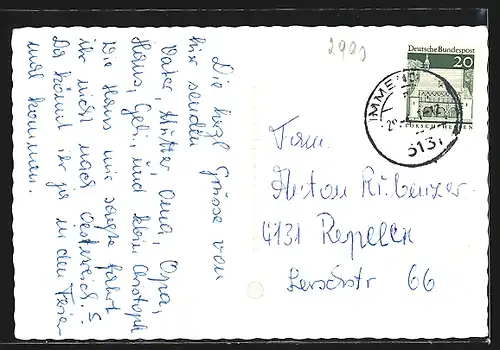 Die herzl Grüsse von
hier senden
Vater, Mutter Oma, Opa,
Hans, Gebi, und klein Christoph
Wie Hans mir sagte fahrt
ihr nicht nach Oesterreich.
Da könnt ihr ja in den Ferien
mal kommen.
2990
Deutsche Bundespost
20
LORSCH/HESSEN
IMMEN
3131
Fam.
Anton Kubenzer
4131 Repelen
Lerschstr 66